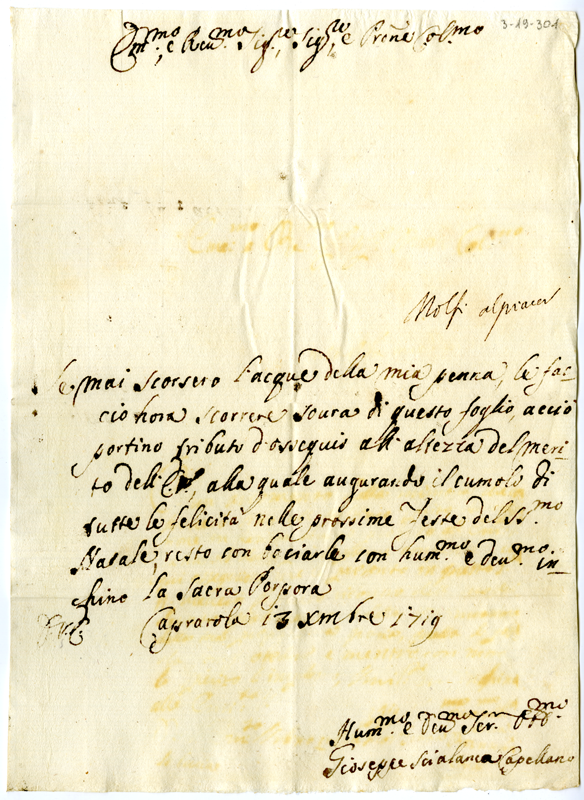 3-19-301
Em.mo, e Reu.mo Sig.re, Sig.re e Prõne Col.mo
Molfi
Se mai scorsero l'acque della mia penna, le fac-
cio hora scorrere soura di questo foglio, acciò
portino tributo d'ossequio all'altezza del meri-
to dell' alla quale augurando il cumolo di
tutte le felicità nelle prossime Feste del SS.mo
Natale, resto con baciarle con hum.mo e deu.mo in-
chino la Sacra Porpora
Caprarola 13 Xmbre 1719
Hum.mo e Deu.mo Ser.r
Gioseppe Scialanca Capellano